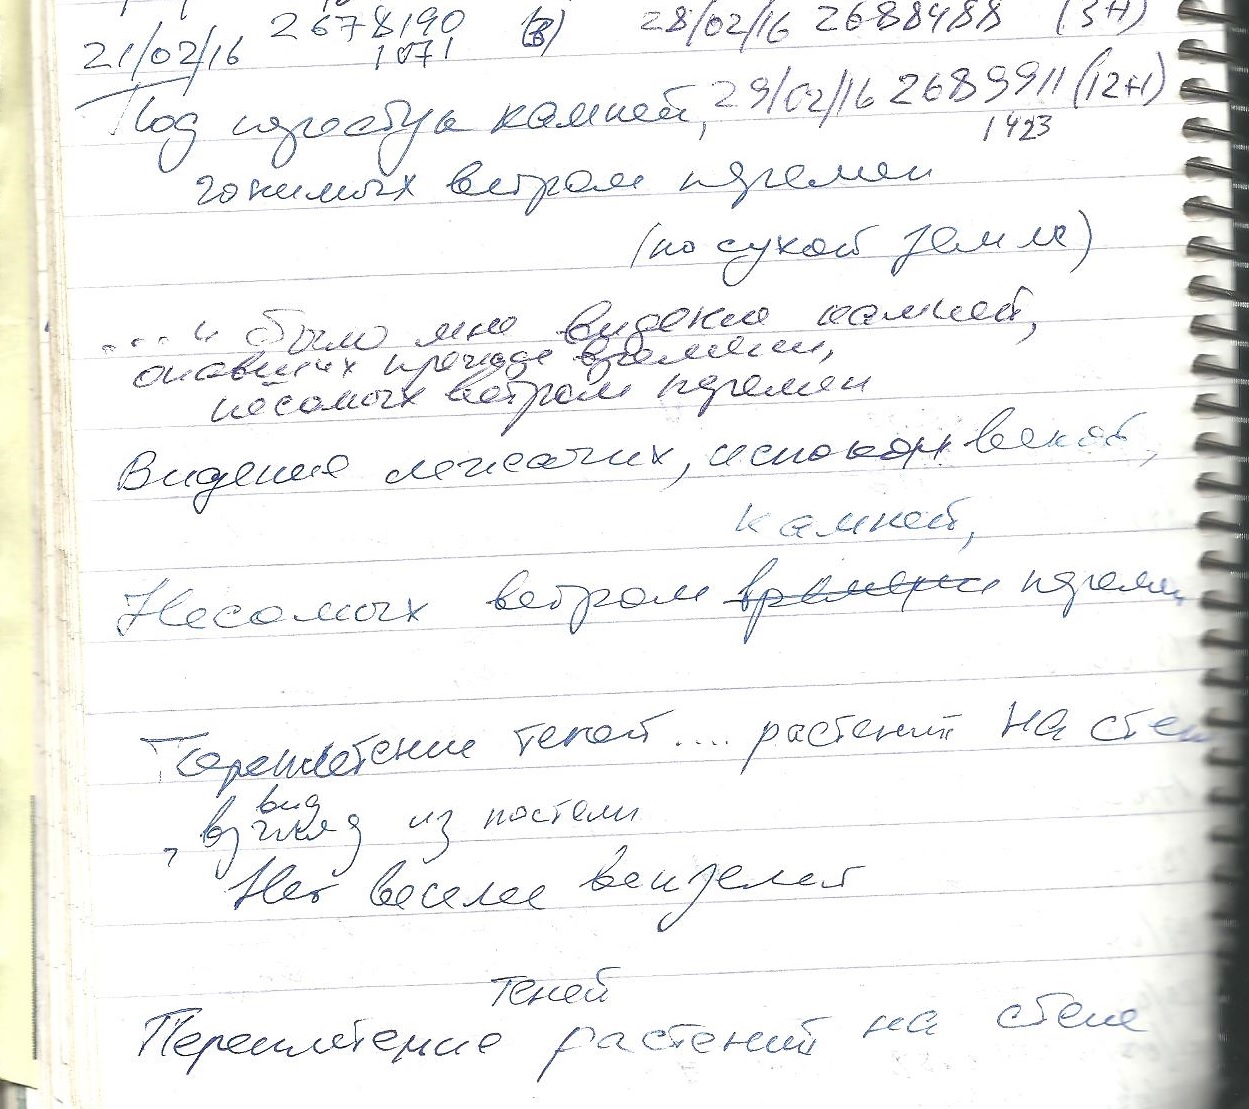 21/02/16 2678190 (8) 28/02/16 2688488 (3н)
1071
Под поступь камней, 29/02/16 2689911 (12н)
1423
гонимых ветром перемен
(по сухой земле)
... и было мне видение камней,
опавших прежде времени,
несомых ветром перемен
Видение лежачих, испокон веков,
камней,
Несомых ветром времени перемен
Переплетение теней .... растений на стене
вид
, взгляд из постели
Нет веселее вензелей
теней
Переплетение растений на стене